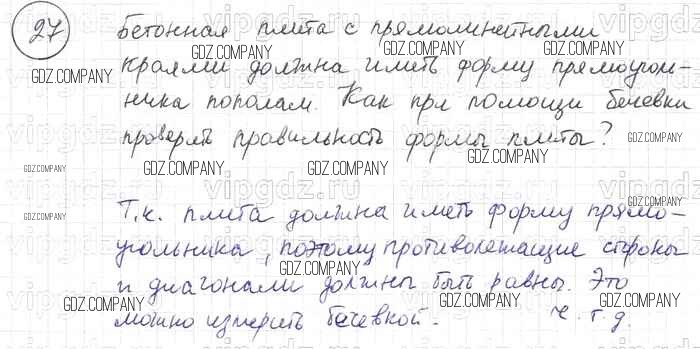 27 Бетонная плита с прямолинейными
краями должна иметь форму прямоуголь-
ника пополам. Как при помощи бечевки
проверить правильность формы плиты?
Т.к. плита должна иметь форму прямо-
угольника, поэтому противолежащие стороны
и диагонали должны быть равны. Это
можно измерить бечевкой. ч.т.д.
GDZ.COMPANY
vipgdz.ru